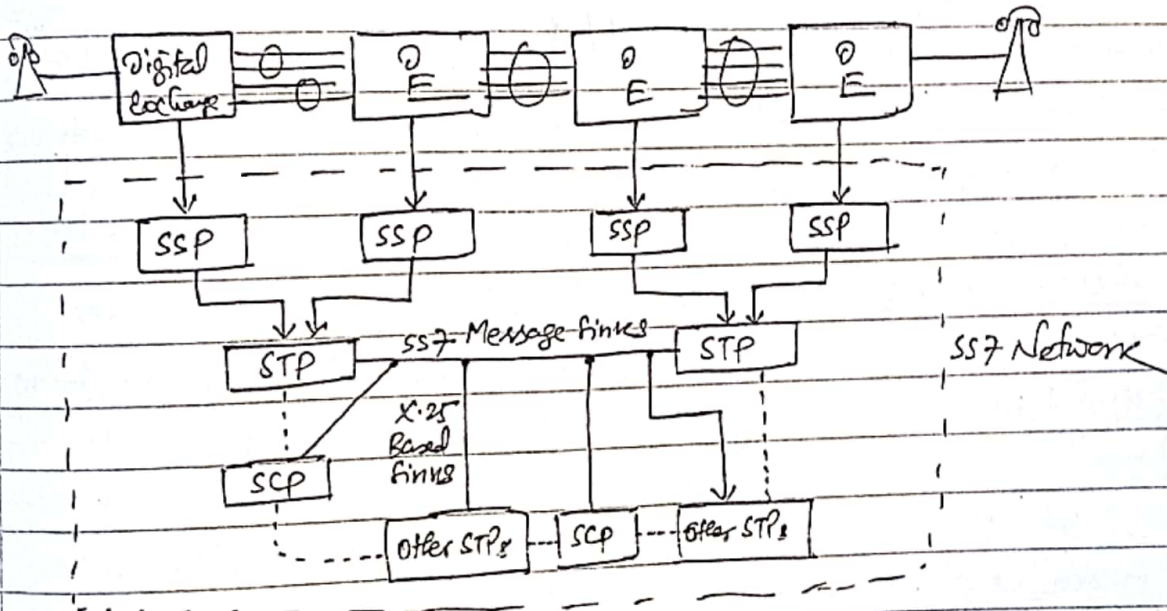 Digital
Exchange
D
E
D
E
D
E
SSP
SSP
SSP
SSP
SS7 Message links
STP
STP
SS7 Network
X.25
Based
links
SCP
Other STPs
SCP
Other STPs